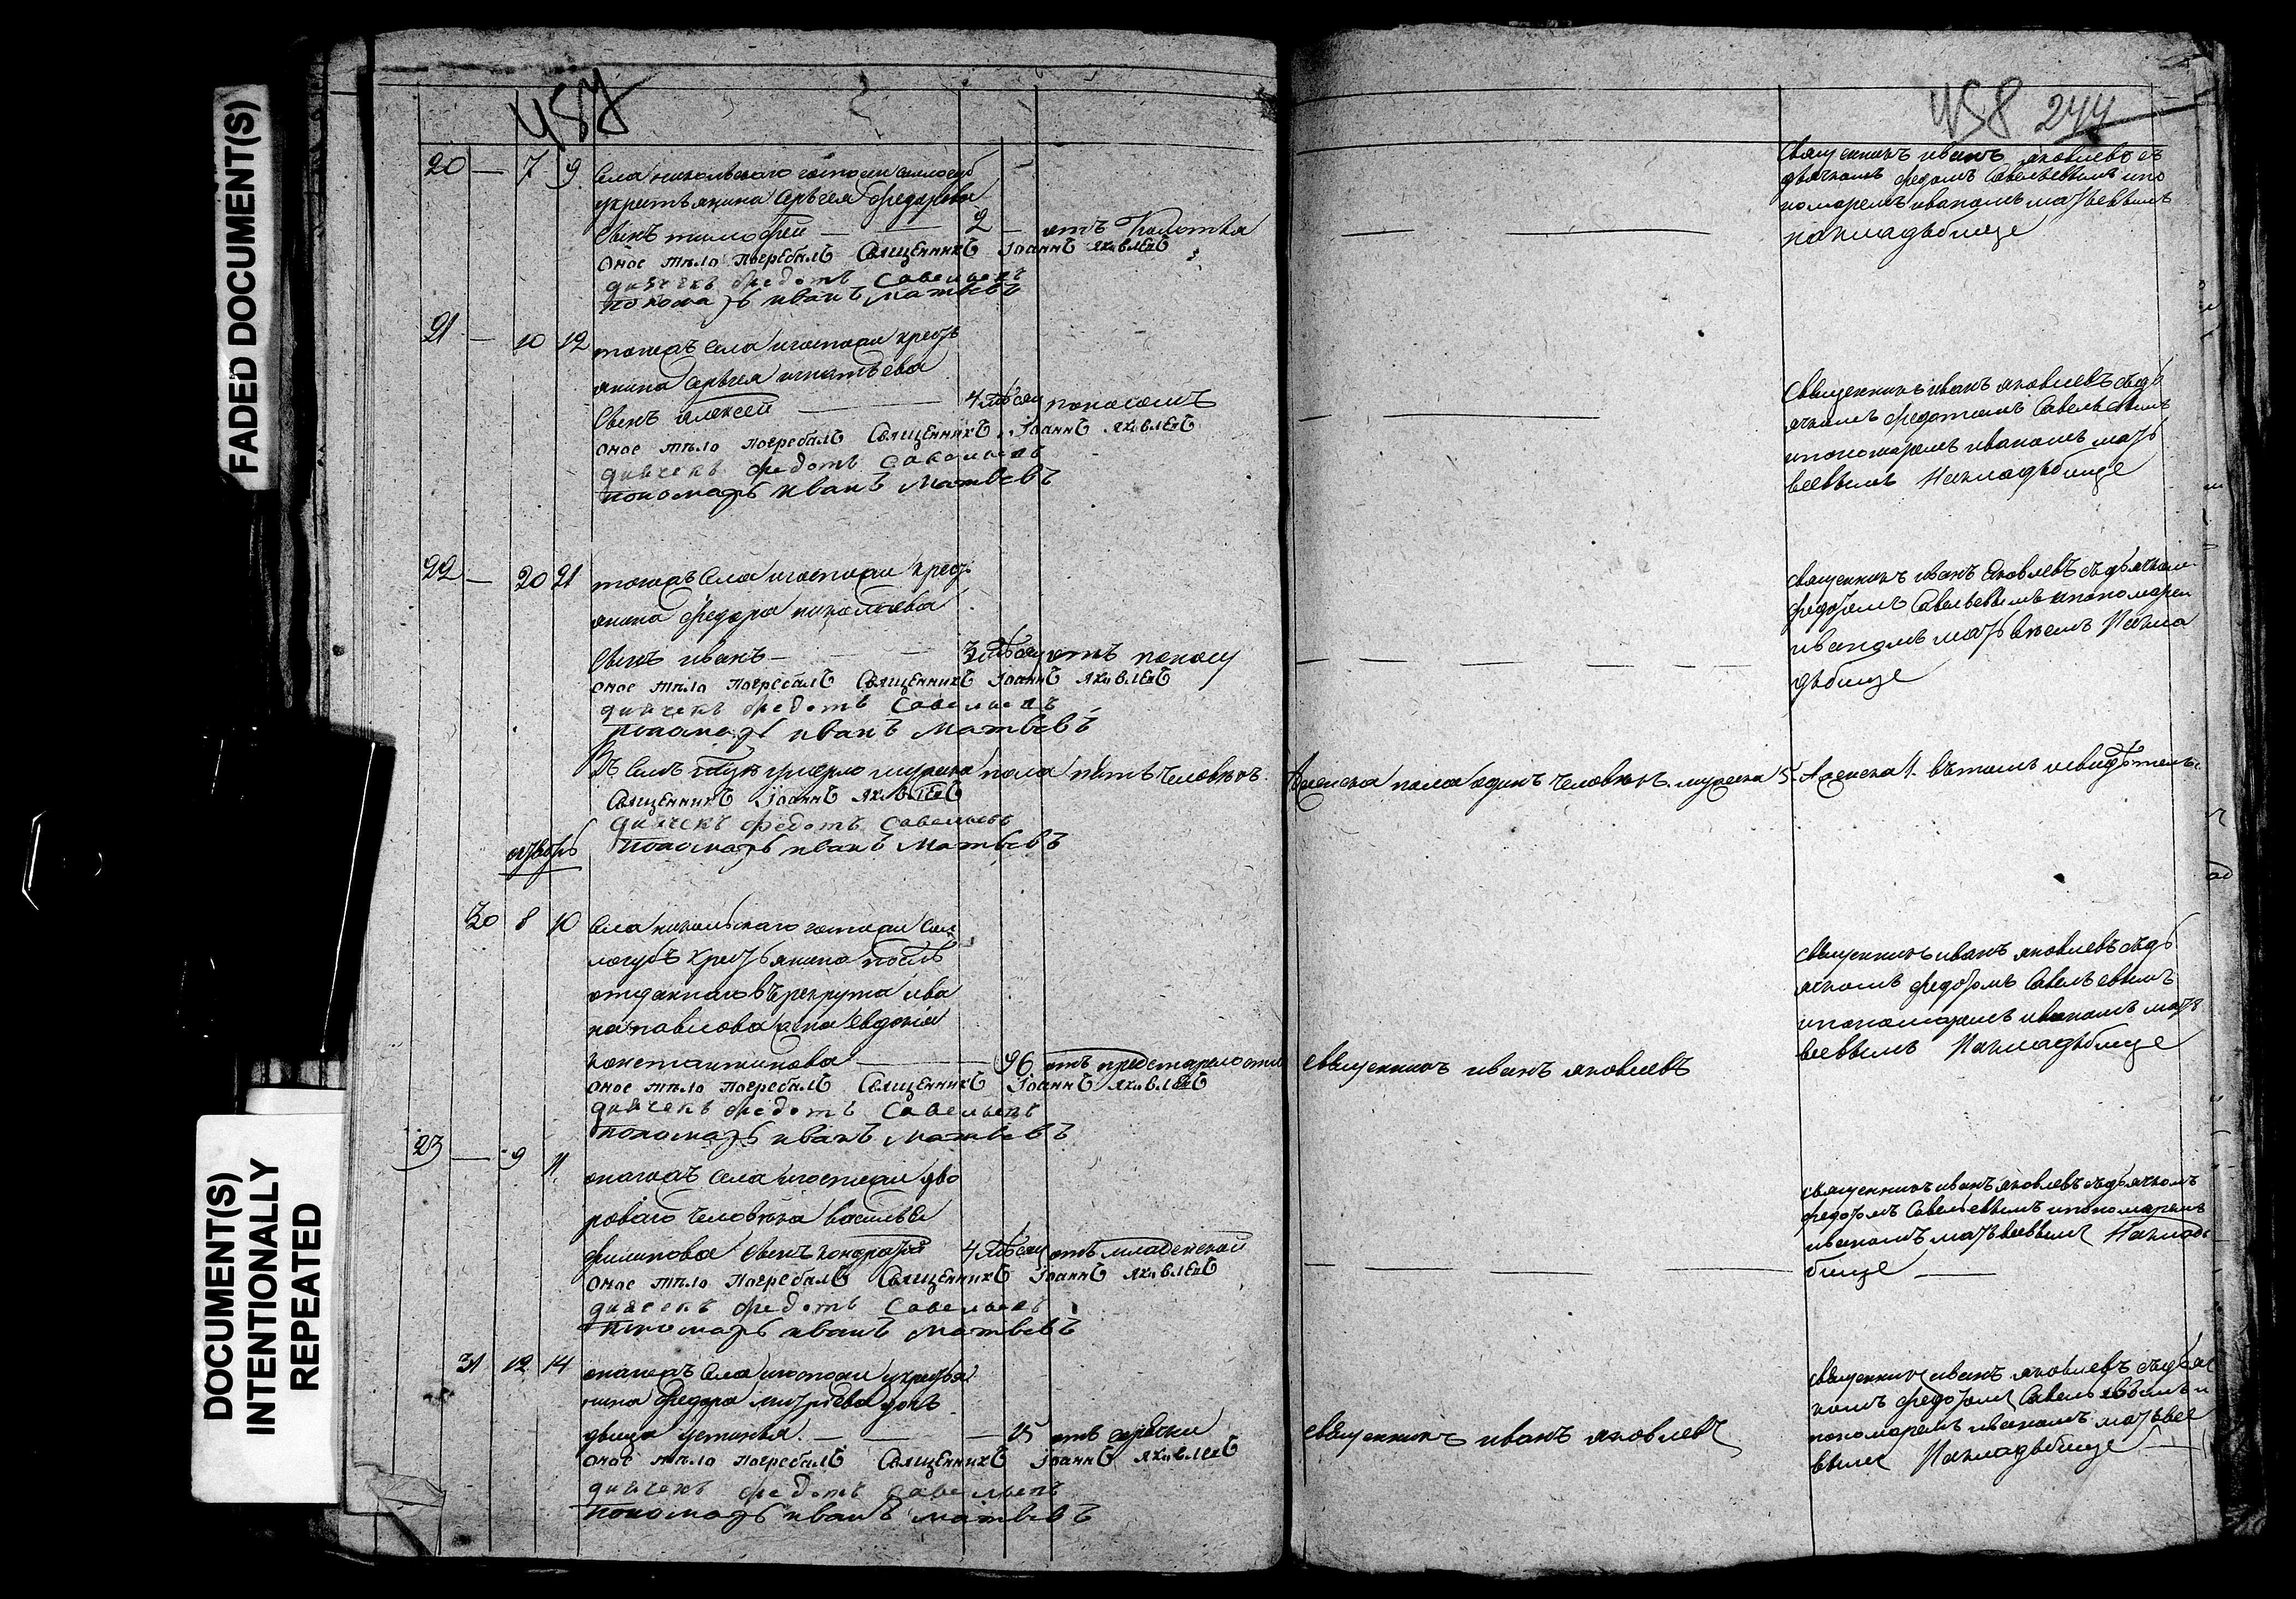 FADED DOCUMENT(S)
DOCUMENT(S)
INTENTIONALLY
REPEATED
457
20 — 7 9 Села никольского госпожи
крестьянина Сергея федорова
сынъ тимофей — 2 — отъ
оное тѣло погребалъ Священникъ Іоаннъ Яковлевъ
дьячекъ федотъ Савельевъ
пономарь иванъ Матвѣевъ
21 — 10 12 тогожъ села игоспожи кресть
янина Сергея игнатьева
Сынъ алексей — 4 мѣсяц поносомъ
оное тѣло погребалъ Священникъ Іоаннъ Яковлевъ
дьячекъ федотъ Савельевъ
пономарь иванъ Матвѣевъ
22 — 20 21 тогожъ села игоспожи кресть
янина федора николаева
Сынъ иванъ — 3 мѣсяц отъ поносу
оное тѣло погребалъ Священникъ Іоаннъ Яковлевъ
дьячекъ федотъ Савельевъ
пономарь иванъ Матвѣевъ
умерло мужеска пола пять человѣкъ
Священникъ Іоаннъ Яковлевъ
дьячекъ федотъ Савельевъ
пономарь иванъ Матвѣевъ
октябрь
30 8 10 Села никольского госпожи Сол
логубъ крестьянина послѣ
отданнаго врекрута ива
на павлова жена Евдокія
константинова — 96 отъ престарелости
оное тѣло погребалъ Священникъ Іоаннъ Яковлевъ
дьячекъ федотъ Савельевъ
пономарь иванъ Матвѣевъ
23 — 9 11 тогожъ села игоспожи дво
роваго человѣка василья
филипова сынъ кондратей 4 мѣсяц отъ младенской
оное тѣло погребалъ Священникъ Іоаннъ Яковлевъ
дьячекъ федотъ Савельевъ
пономарь иванъ Матвѣевъ
31 12 14 тогожъ села игоспожи крестья
нина федора митріева дочь
двица устинья — 15 отъ
оное тѣло погребалъ Священникъ Іоаннъ Яковлевъ
дьячекъ федотъ Савельевъ
пономарь иванъ Матвѣевъ
458 244
Священникъ иванъ яковлевъ съ
дьячкомъ федотомъ Савельевымъ ипо
номаремъ иваномъ матвеевымъ
накладьбище
Священникъ иванъ яковлевъ съдь
ячкомъ федотомъ Савельевымъ
ипономаремъ иваномъ мать
веевымъ Накладьбище
священникъ иванъ Яковлевъ съдьячком
федотомъ Савельевымъ ипономарем
иваномъ Накла
дьбище
женска пола одинъ человѣкъ мужеска 5 женска 1 втомъ исвидѣтельс
священникъ иванъ яковлевъ съдь
ячкомъ федотомъ Савельевымъ
ипономаремъ иваномъ матв
веевымъ Накладьбище
священникъ иванъ яковлевъ
священникъ иванъ яковлевъ съдьячкомъ
федотомъ Савельевымъ ипономаремъ
иваномъ матьвеевымъ Накладь
бище —
священникъ иванъ яковлевъ съдьяч
комъ федотомъ Савельевымъ и
пономаремъ иваномъ матьвее
вымъ Накладьбище —
священникъ иванъ яковлевъ